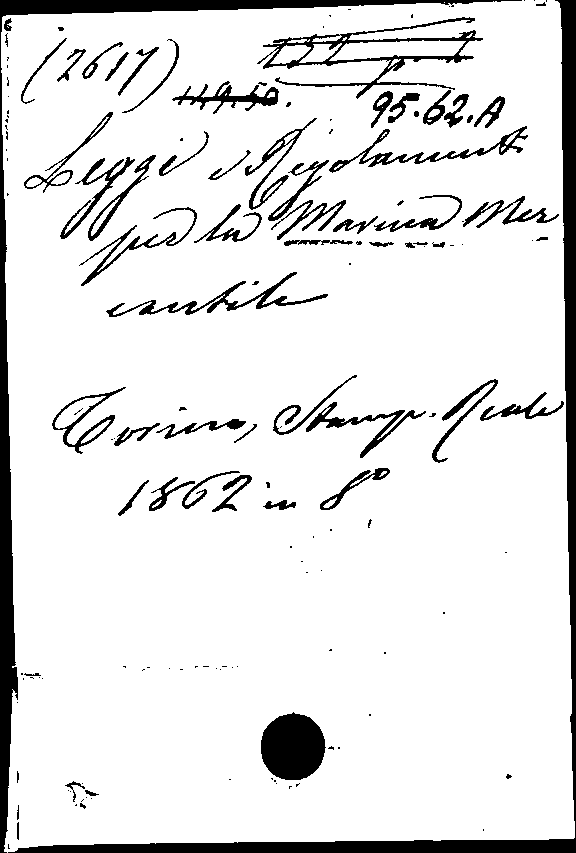 (2617)
149.50.
95.62.A
Leggi e Regolamenti
per la Marina Mer
cantile
Torino, Stamp. Reale
1862 in 8º